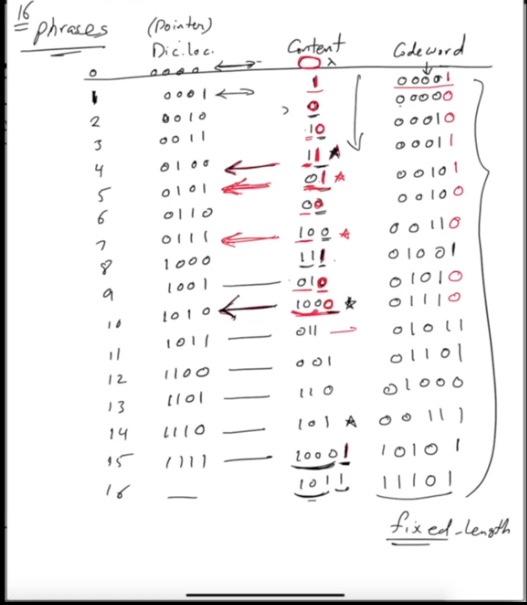 16 phrases (Pointer)
Dic.loc. Content Codeword
0 0000 λ
1 0001 1 00001
2 0010 0 00000
3 0011 10 00010
4 0100 11 00011
5 0101 01 00101
6 0110 00 00100
7 0111 100 00110
8 1000 111 01001
9 1001 010 01010
10 1010 1000 01110
11 1011 011 01011
12 1100 001 01101
13 1101 110 01000
14 1110 101 00111
15 1111 10001 10101
16 1011 11101
fixed-length